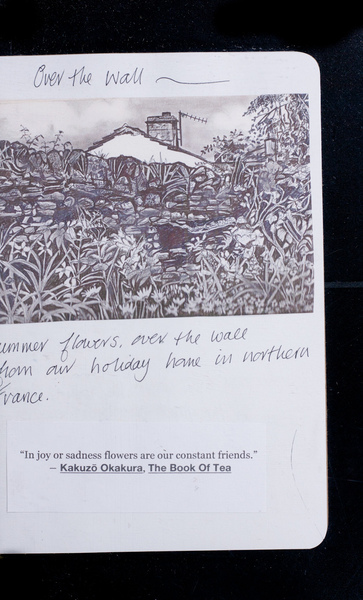 Over the wall
ummer flowers, over the wall
from our holiday home in northern
rance.
“In joy or sadness flowers are our constant friends.”
– Kakuzō Okakura, The Book Of Tea